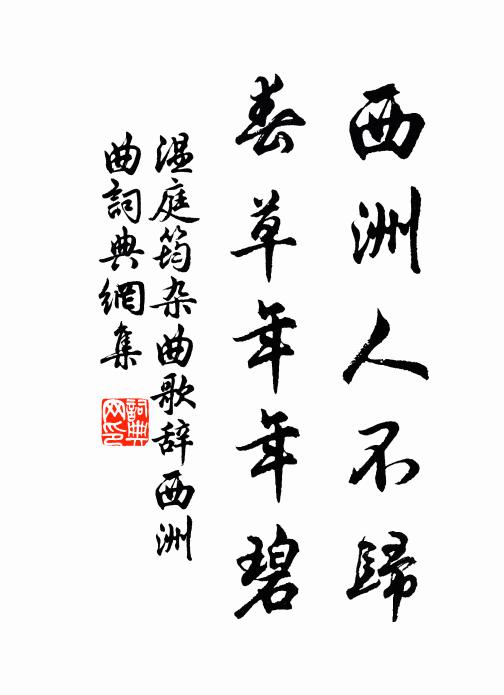 西洲人不歸
春草年年碧
温庭筠杂曲歌辞西洲
曲詞典網集
詞典
网印